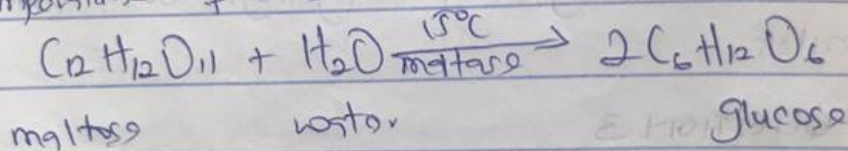 C12 H12 O11 + H2O 15°C maltase → 2C6 H12 O6
maltose water glucose